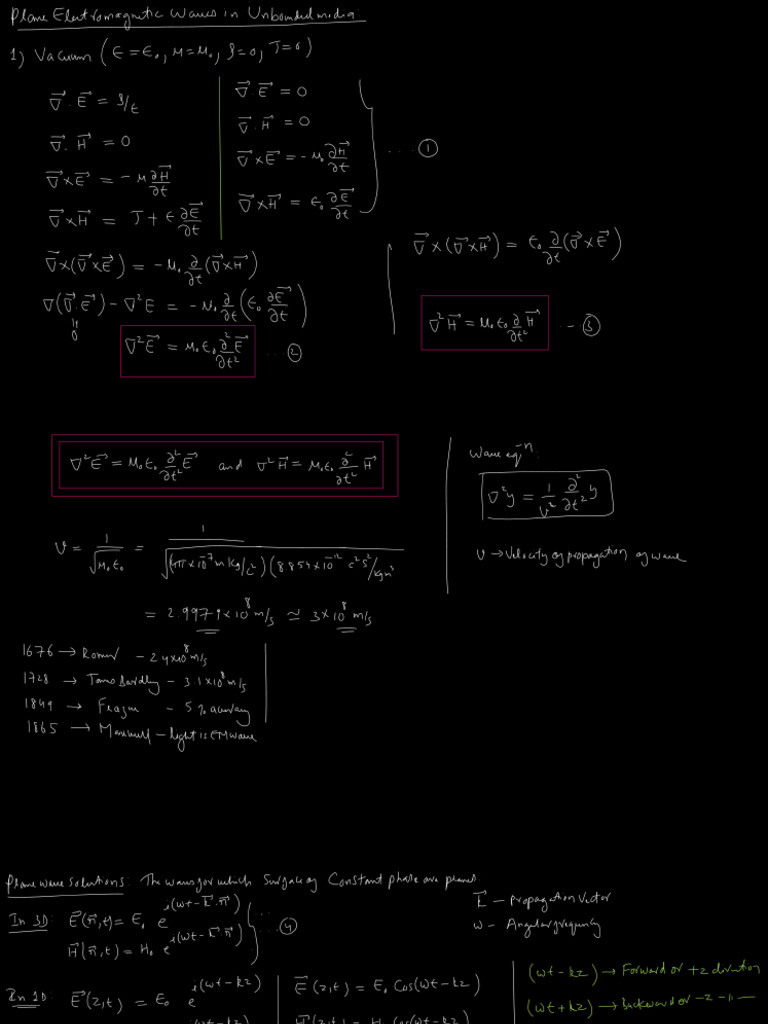 Plane Electromagnetic Waves in Unbounded media:
1) Vacuum (ϵ=ϵ₀, μ=μ₀, ρ=0, J=0)
∇⃗.E⃗ = ρ/ϵ
∇⃗.H⃗ = 0
∇⃗×E⃗ = -μ ∂H⃗/∂t
∇⃗×H⃗ = J + ϵ ∂E⃗/∂t
∇⃗.E⃗ = 0
∇⃗.H⃗ = 0
∇⃗×E⃗ = -μ₀ ∂H⃗/∂t
∇⃗×H⃗ = ϵ₀ ∂E⃗/∂t
... ①
∇⃗×(∇⃗×E⃗) = -μ₀ ∂/∂t (∇⃗×H⃗)
∇(∇⃗.E⃗) - ∇²E = -μ₀ ∂/∂t (ϵ₀ ∂E⃗/∂t)
0
∇²E⃗ = μ₀ϵ₀ ∂²/∂t² E⃗ ... ②
∇⃗×(∇⃗×H⃗) = ϵ₀ ∂/∂t (∇⃗×E⃗)
∇²H⃗ = μ₀ϵ₀ ∂/∂t² H⃗ - ③
∇²E⃗ = μ₀ϵ₀ ∂²/∂t² E⃗ and ∇²H⃗ = μ₀ϵ₀ ∂²/∂t² H⃗
Wave eqⁿ:
∇²y = 1/v² ∂²/∂t² y
v → Velocity of propagation of wave
v = 1/√μ₀ϵ₀ = 1/√(4π×10⁻⁷ m kg/c²)(8.854×10⁻¹² c²s²/kg m³)
= 2.9979×10⁸ m/s ≃ 3×10⁸ m/s
1676 → Romer - 2.4×10⁸ m/s
1728 → - 3.1×10⁸ m/s
1849 → - 5% accuracy
1865 → Maxwell - light is EM wave
Plane wave solutions: The waves for which Surface of Constant phase are planes.
In 3D: E⃗(r⃗,t) = E₀ e^i(ωt-k⃗.r⃗)
H⃗(r⃗,t) = H₀ e^i(ωt-k⃗.r⃗)
... ④
k⃗ - propagation vector
ω - Angular frequency
In 1D: E⃗(z,t) = E₀ e^i(ωt-kz)
E⃗(z,t) = E₀ Cos(ωt-kz)
(ωt-kz) → Forward or +z direction
(ωt+kz) → backward or -z -11-